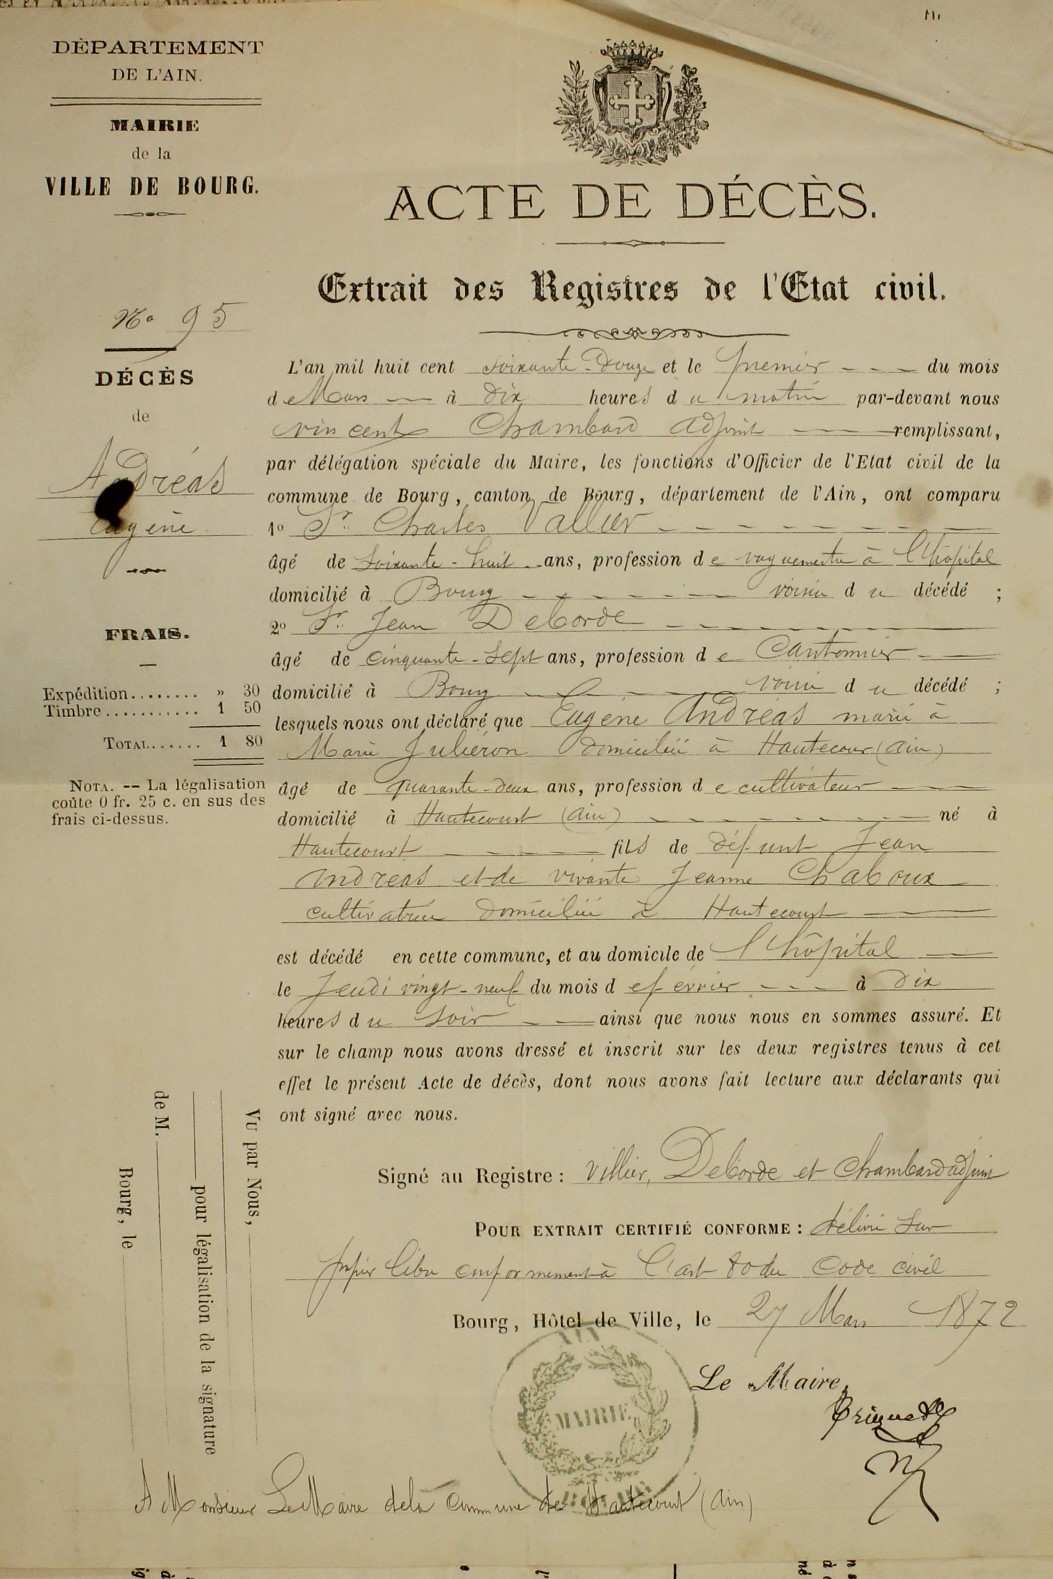 DÉPARTEMENT
DE L'AIN.
MAIRIE
de la
VILLE DE BOURG.
ACTE DE DÉCÈS.
Extrait des Registres de l'Etat civil.
No 95
DÉCÈS
de
Andréas
Eugène
FRAIS.
Expédition........ » 30
Timbre........... 1 50
TOTAL...... 1 80
NOTA. -- La légalisation
coûte 0 fr. 25 c. en sus des
frais ci-dessus.
L'an mil huit cent soixante-douze et le premier du mois
de Mars à dix heures du matin par-devant nous
Vincent Chambard adjoint remplissant,
par délégation spéciale du Maire, les fonctions d'Officier de l'Etat civil de la
commune de Bourg, canton de Bourg, département de l'Ain, ont comparu
1o Sr Charles Vallier
âgé de soixante-huit ans, profession de vaguemestre à l'hôpital
domicilié à Bourg voisin du décédé ;
2o Sr. Jean Deborde
âgé de cinquante-sept ans, profession de Cantonnier
domicilié à Bourg voisin du décédé ;
lesquels nous ont déclaré que Eugène Andréas marié à
Marie Juliéron domicilié à Hautecour (ain)
âgé de quarante-deux ans, profession de cultivateur
domicilié à Hautecourt (ain) né à
Hautecourt fils de défunt Jean
Andréas et de vivante Jeanne Chaboux
cultivatrice domiciliée à Hautecourt
est décédé en cette commune, et au domicile de l'hôpital
le Jeudi vingt-neuf du mois de février à dix
heures du soir ainsi que nous nous en sommes assuré. Et
sur le champ nous avons dressé et inscrit sur les deux registres tenus à cet
effet le présent Acte de décès, dont nous avons fait lecture aux déclarants qui
ont signé avec nous.
Signé au Registre : Villier, Deborde et Chambard adjoint
POUR EXTRAIT CERTIFIÉ CONFORME : délivré sur
papier libre conformément à l'art 80 du Code civil
Bourg, Hôtel de Ville, le 27 Mars 1872
Le Maire,
MAIRIE
A Monsieur Le Maire de la Commune de Hautecourt (ain)
Vu par Nous,
pour légalisation de la signature
de M.
Bourg, le